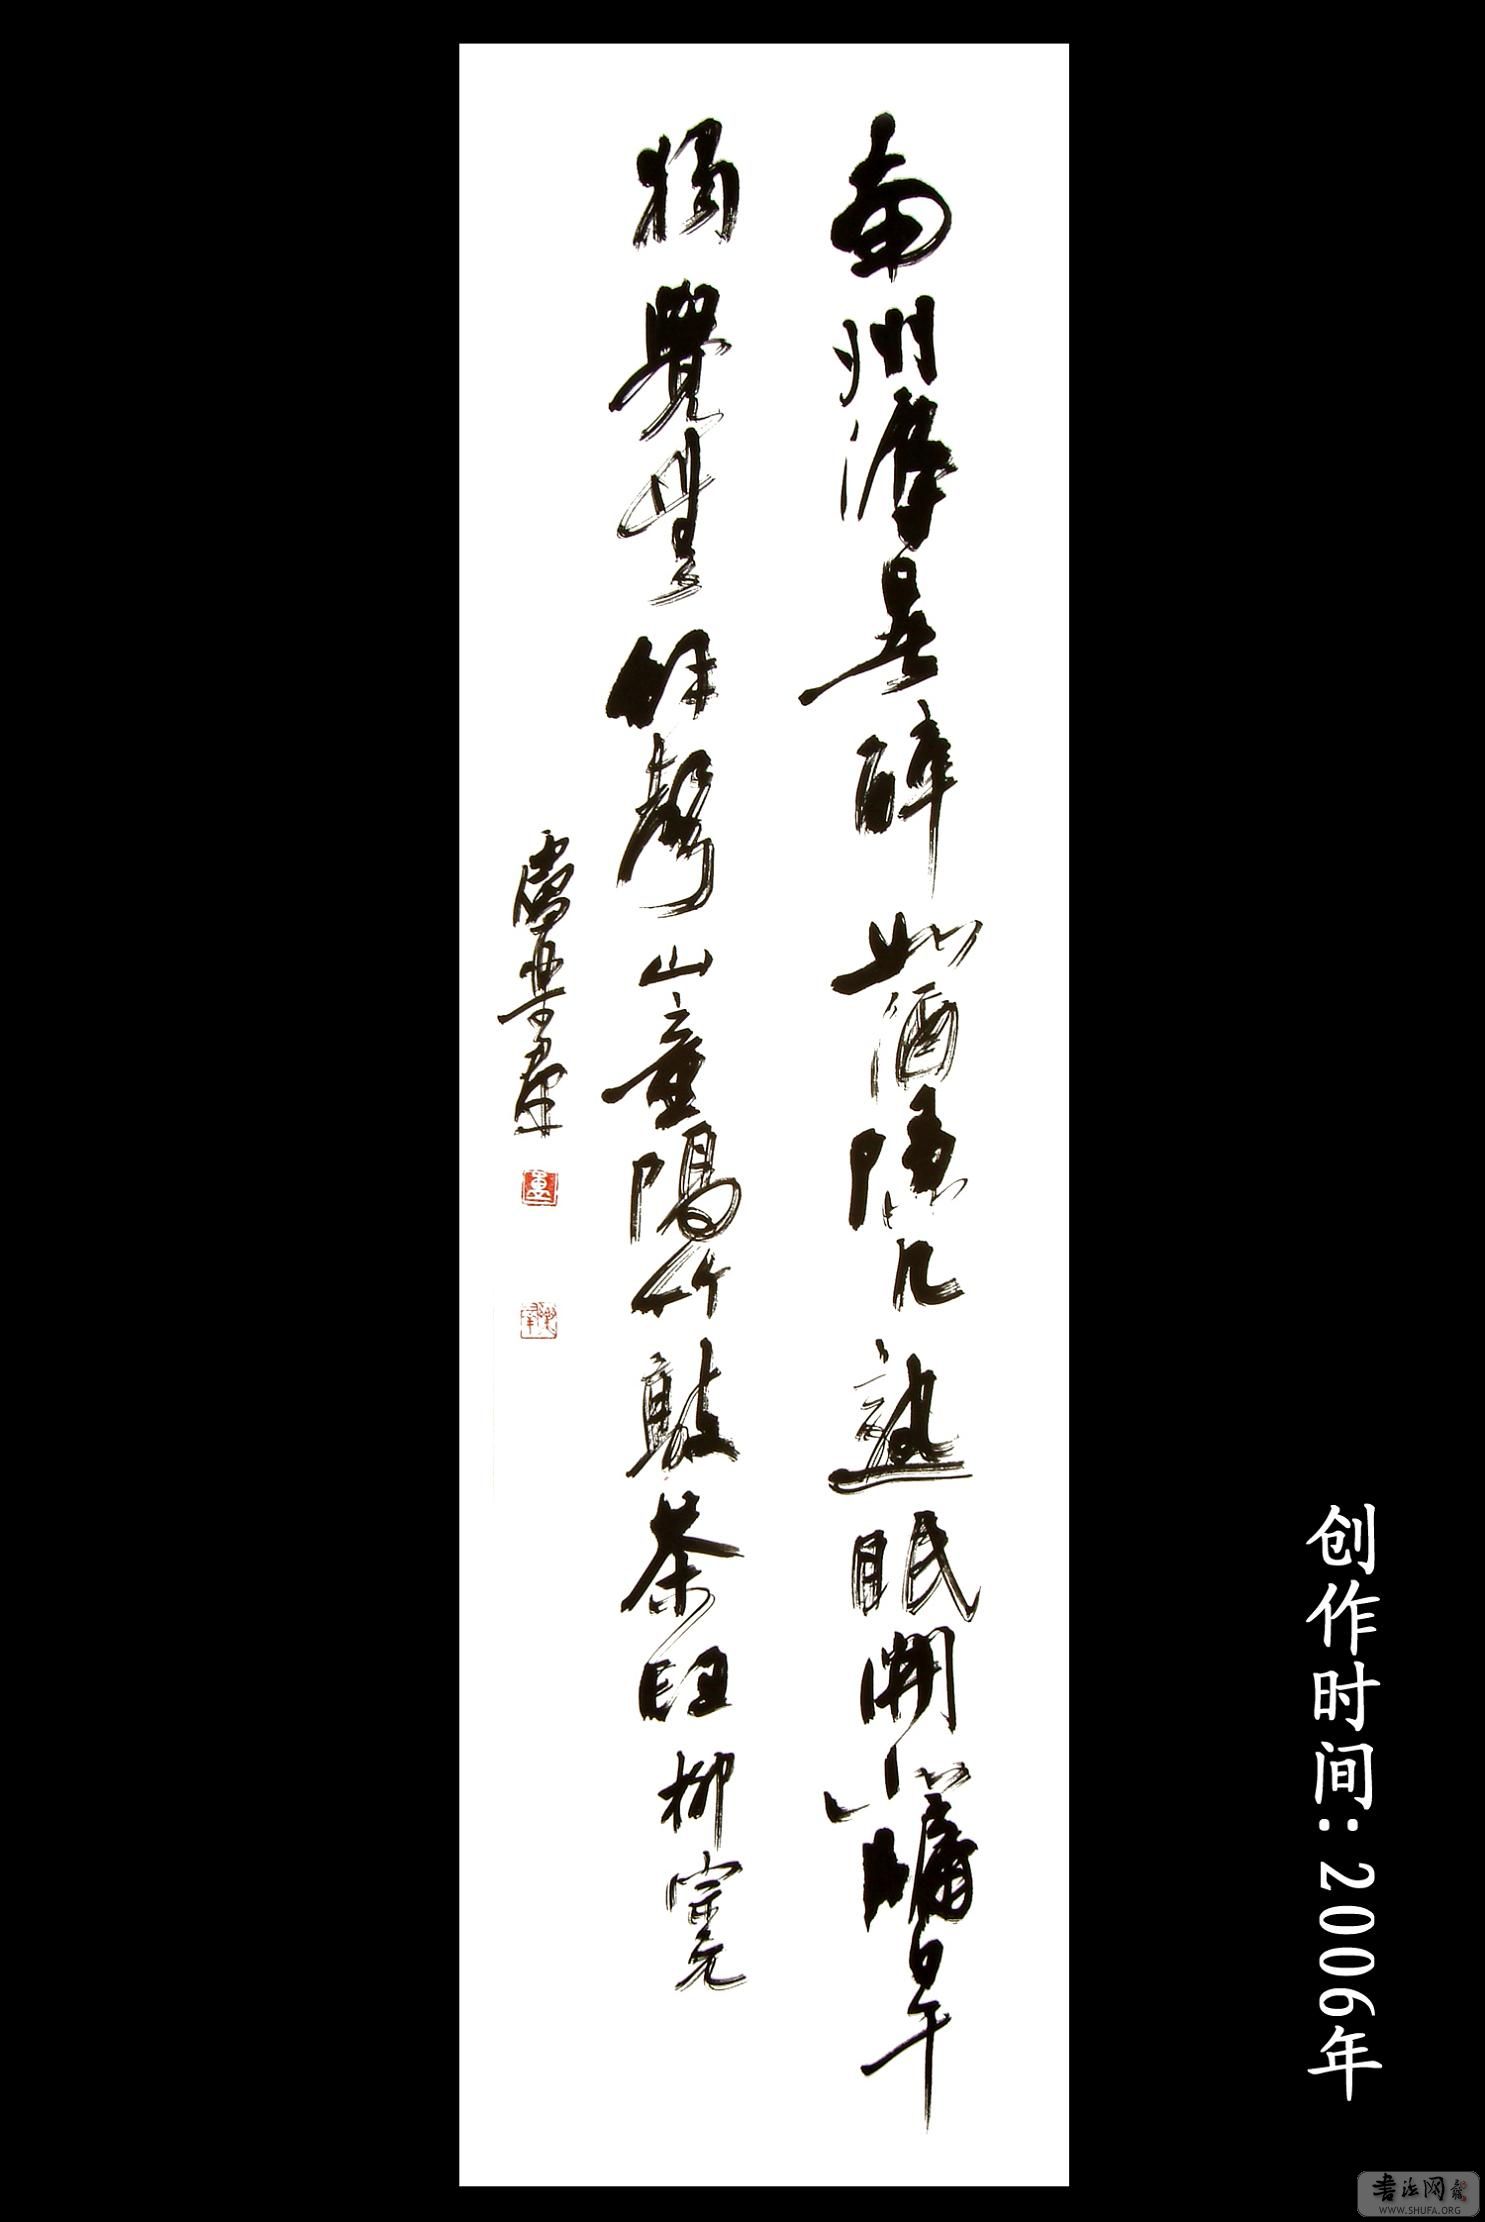 南州溽暑醉如酒隱几熟眠開北牖日午
獨覺無餘聲山童隔竹敲茶臼柳宗元
创作时间：2006年
書法网
WWW.SHUFA.ORG